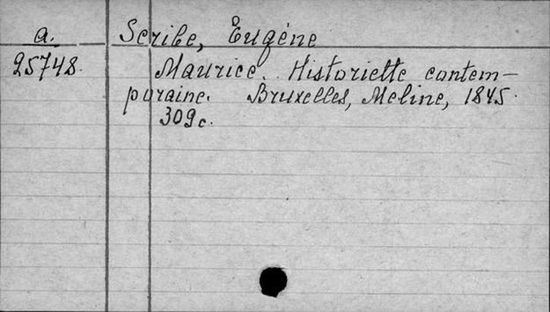 a. Scribe, Eugène
25748. Maurice. Historiette contem-
poraine. Bruxelles, Meline, 1845.
309 c.